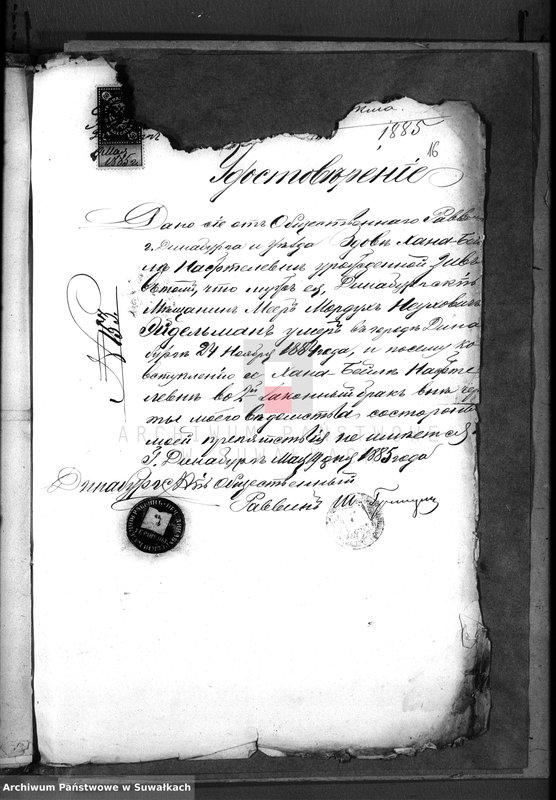 1885
16
Удостовѣреніе
Дано сіе отъ Общественнаго Раввина
г. Динабурга и уѣзда Вдовѣ Хана-Бей
лѣ Нафтелевнѣ урожденной
въ томъ, что мужъ ея, Динабургскій
Мѣщанинъ Мееръ Мордухъ Неуховичъ
Эйдельманъ умеръ въ городѣ Дина
бургѣ 24 Ноября 1884 года, и посему ко
вступленію ея Хана Бейлѣ Нафте
левнѣ во 2ой законный бракъ внѣ чер
ты моего вѣдомства со стороны
моей препятствія не имѣется.
Г. Динабургъ Мая 4 дня 1885 года
Динабургскій Общественный
Раввинъ
№ 153
ARCHIWUM PAŃSTWOWE
W SUWAŁKACH
Archiwum Państwowe w Suwałkach